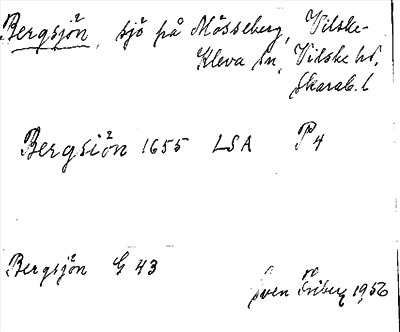 Bergsjön, sjö på Mösseberg, Vilske-
Kleva sn, Vilske hd,
Skarab. l
Bergsiön 1655 LSA P4
Bergsjön G 43
Sven 1956